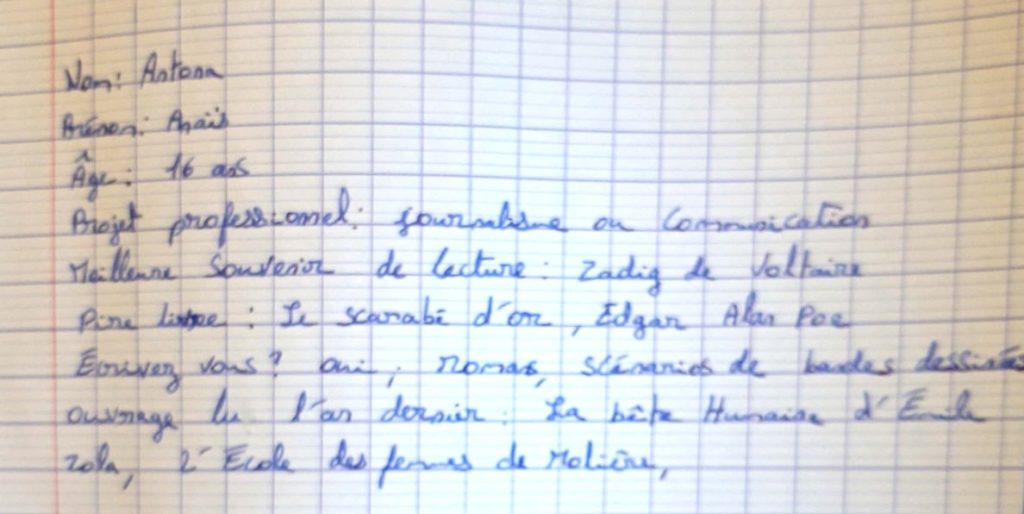 Nom: Antona
Prénom: Anaïs
Âge: 16 ans
Projet professionnel: journalisme ou Communication
Meilleure Souvenir de lecture: Zadig de Voltaire
Pire livre: Le scarabé d'or, Edgar Alan Poe
Écrivez vous? oui, romans, scénarios de bandes dessinées
ouvrage lu l'an dernier: La bête Humaine d'Emile
Zola, L'Ecole des femmes de Molière,